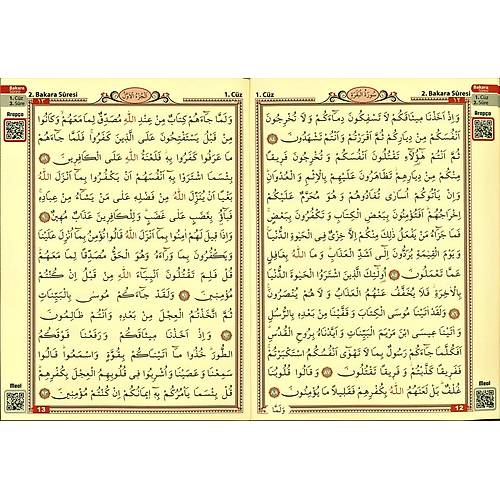 Bakara
Sûresi
1. Cüz
2. Sûre
2. Bakara Sûresi
سُورَةُ الْبَقَرَةِ
1. Cüz
١٢
Arapça
وَاِذْ اَخَذْنَا مِيثَاقَكُمْ لَا تَسْفِكُونَ دِمَٓاءَكُمْ وَلَا تُخْرِجُونَ
اَنْفُسَكُمْ مِنْ دِيَارِكُمْ ثُمَّ اَقْرَرْتُمْ وَاَنْتُمْ تَشْهَدُونَ
ثُمَّ اَنْتُمْ هٰٓؤُلَٓاءِ تَقْتُلُونَ اَنْفُسَكُمْ وَتُخْرِجُونَ فَرِيقًا
مِنْكُمْ مِنْ دِيَارِهِمْ تَظَاهَرُونَ عَلَيْهِمْ بِالْاِثْمِ وَالْعُدْوَانِ
وَاِنْ يَأْتُوكُمْ اُسَارٰى تُفَادُوهُمْ وَهُوَ مُحَرَّمٌ عَلَيْكُمْ
اِخْرَاجُهُمْ اَفَتُؤْمِنُونَ بِبَعْضِ الْكِتَابِ وَتَكْفُرُونَ بِبَعْضٍ
فَمَا جَزَٓاءُ مَنْ يَفْعَلُ ذٰلِكَ مِنْكُمْ اِلَّا خِزْيٌ فِي الْحَيٰوةِ الدُّنْيَا
وَيَوْمَ الْقِيٰمَةِ يُرَدُّونَ اِلٰٓى اَشَدِّ الْعَذَابِ وَمَا اللّٰهُ بِغَافِلٍ
عَمَّا تَعْمَلُونَ اُولٰٓئِكَ الَّذِينَ اشْتَرَوُا الْحَيٰوةَ الدُّنْيَا
بِالْاٰخِرَةِ فَلَا يُخَفَّفُ عَنْهُمُ الْعَذَابُ وَلَا هُمْ يُنْصَرُونَ
وَلَقَدْ اٰتَيْنَا مُوسَى الْكِتَابَ وَقَفَّيْنَا مِنْ بَعْدِهِ بِالرُّسُلِ
وَاٰتَيْنَا عِيسَى ابْنَ مَرْيَمَ الْبَيِّنَاتِ وَاَيَّدْنَاهُ بِرُوحِ الْقُدُسِ
اَفَكُلَّمَا جَٓاءَكُمْ رَسُولٌ بِمَا لَا تَهْوٰٓى اَنْفُسُكُمُ اسْتَكْبَرْتُمْ
فَفَرِيقًا كَذَّبْتُمْ وَفَرِيقًا تَقْتُلُونَ وَقَالُوا قُلُوبُنَا
غُلْفٌ بَلْ لَعَنَهُمُ اللّٰهُ بِكُفْرِهِمْ فَقَلِيلًا مَا يُؤْمِنُونَ
Meal
وَلَمَّا
12
Bakara
Sûresi
1. Cüz
2. Sûre
1. Cüz
اَلْجُزْءُ الْاَوَّلُ
2. Bakara Sûresi
١٣
Arapça
وَلَمَّا جَٓاءَهُمْ كِتَابٌ مِنْ عِنْدِ اللّٰهِ مُصَدِّقٌ لِمَا مَعَهُمْ وَكَانُوا
مِنْ قَبْلُ يَسْتَفْتِحُونَ عَلَى الَّذِينَ كَفَرُوا فَلَمَّا جَٓاءَهُمْ
مَا عَرَفُوا كَفَرُوا بِهِ فَلَعْنَةُ اللّٰهِ عَلَى الْكَافِرِينَ
بِئْسَمَا اشْتَرَوْا بِهِٓ اَنْفُسَهُمْ اَنْ يَكْفُرُوا بِمَٓا اَنْزَلَ اللّٰهُ
بَغْيًا اَنْ يُنَزِّلَ اللّٰهُ مِنْ فَضْلِهِ عَلٰى مَنْ يَشَٓاءُ مِنْ عِبَادِهِ
فَبَٓاؤُ بِغَضَبٍ عَلٰى غَضَبٍ وَلِلْكَافِرِينَ عَذَابٌ مُهِينٌ
وَاِذَا قِيلَ لَهُمْ اٰمِنُوا بِمَٓا اَنْزَلَ اللّٰهُ قَالُوا نُؤْمِنُ بِمَٓا اُنْزِلَ عَلَيْنَا
وَيَكْفُرُونَ بِمَا وَرَٓاءَهُ وَهُوَ الْحَقُّ مُصَدِّقًا لِمَا مَعَهُمْ
قُلْ فَلِمَ تَقْتُلُونَ اَنْبِيَٓاءَ اللّٰهِ مِنْ قَبْلُ اِنْ كُنْتُمْ
مُؤْمِنِينَ وَلَقَدْ جَٓاءَكُمْ مُوسٰى بِالْبَيِّنَاتِ
ثُمَّ اتَّخَذْتُمُ الْعِجْلَ مِنْ بَعْدِهِ وَاَنْتُمْ ظَالِمُونَ
وَاِذْ اَخَذْنَا مِيثَاقَكُمْ وَرَفَعْنَا فَوْقَكُمُ
الطُّورَ خُذُوا مَٓا اٰتَيْنَاكُمْ بِقُوَّةٍ وَاسْمَعُوا قَالُوا
سَمِعْنَا وَعَصَيْنَا وَاُشْرِبُوا فِي قُلُوبِهِمُ الْعِجْلَ بِكُفْرِهِمْ
قُلْ بِئْسَمَا يَأْمُرُكُمْ بِهِٓ اِيمَانُكُمْ اِنْ كُنْتُمْ مُؤْمِنِينَ
Meal
13